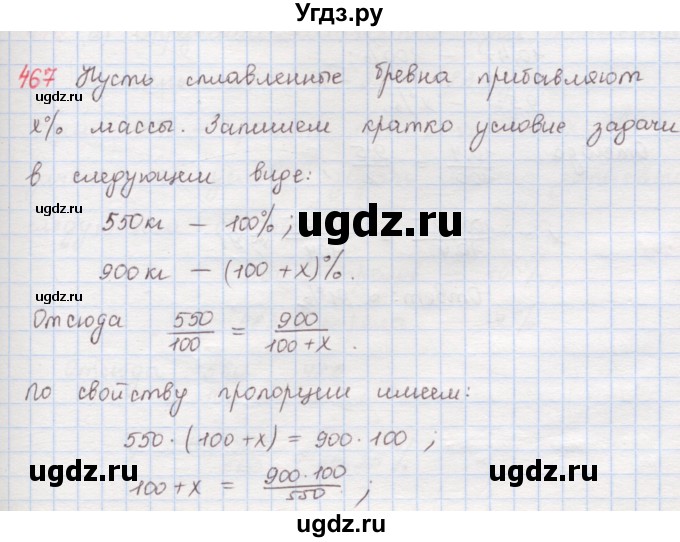 Угдз.ру
467 Пусть сплавленные бревна прибавляют
www.gdz.ru
x% массы. Запишем кратко условие задачи
в следующем виде:
www.gdz.ru
550 кг — 100%;
ugdz.ru
900 кг — (100 + x)%.
www.gdz.ru
Отсюда 550/100 = 900/(100 + x).
ugdz.ru
По свойству пропорции имеем:
550 · (100 + x) = 900 · 100;
ugdz.ru
100 + x = 900 · 100/550;
ugdz.ru
ugdz.ru